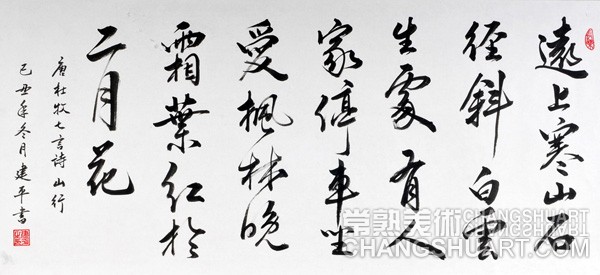 遠上寒山石
徑斜白雲
生處有人
家停車坐
愛楓林晚
霜葉紅於
二月花
唐杜牧七言詩山行
己丑年冬月建平書
常熟美術 CHANGSHUART
CHANGSHUART.COM